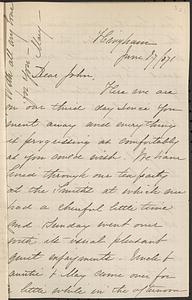 Hingham
June 17/71
Dear John,
Here we are
on our third day since you
went away and everything
is progressing as comfortably
as you could wish. We have
lived through our tea party
at the Smiths at which we
had a cheerful little time
and Sunday went over
with its usual pleasant
quiet enjoyments. Uncle &
auntie & May came over for
a little while in the afternoon
with all my love
for you - May